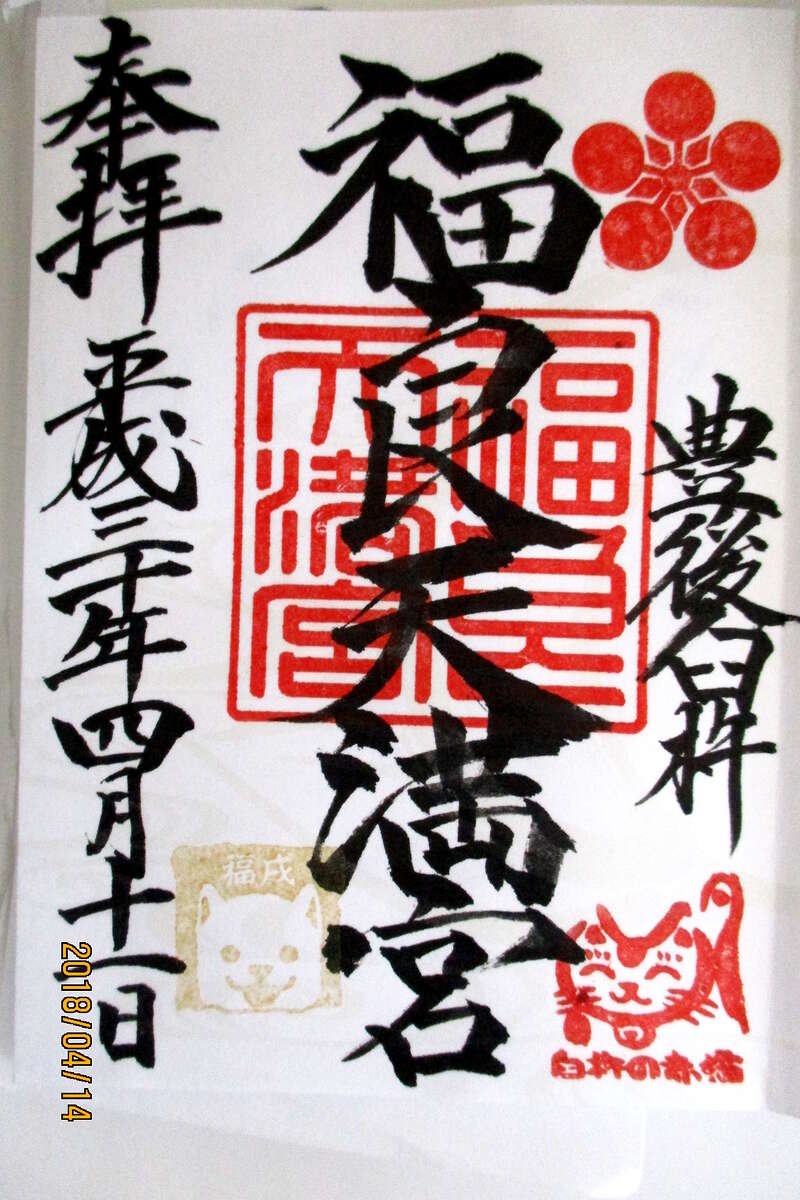 豊後臼杵
福良天満宮
福良
天満宮
奉拝
平成三十年四月十一日
福戌
臼杵の赤猫
2018/04/14